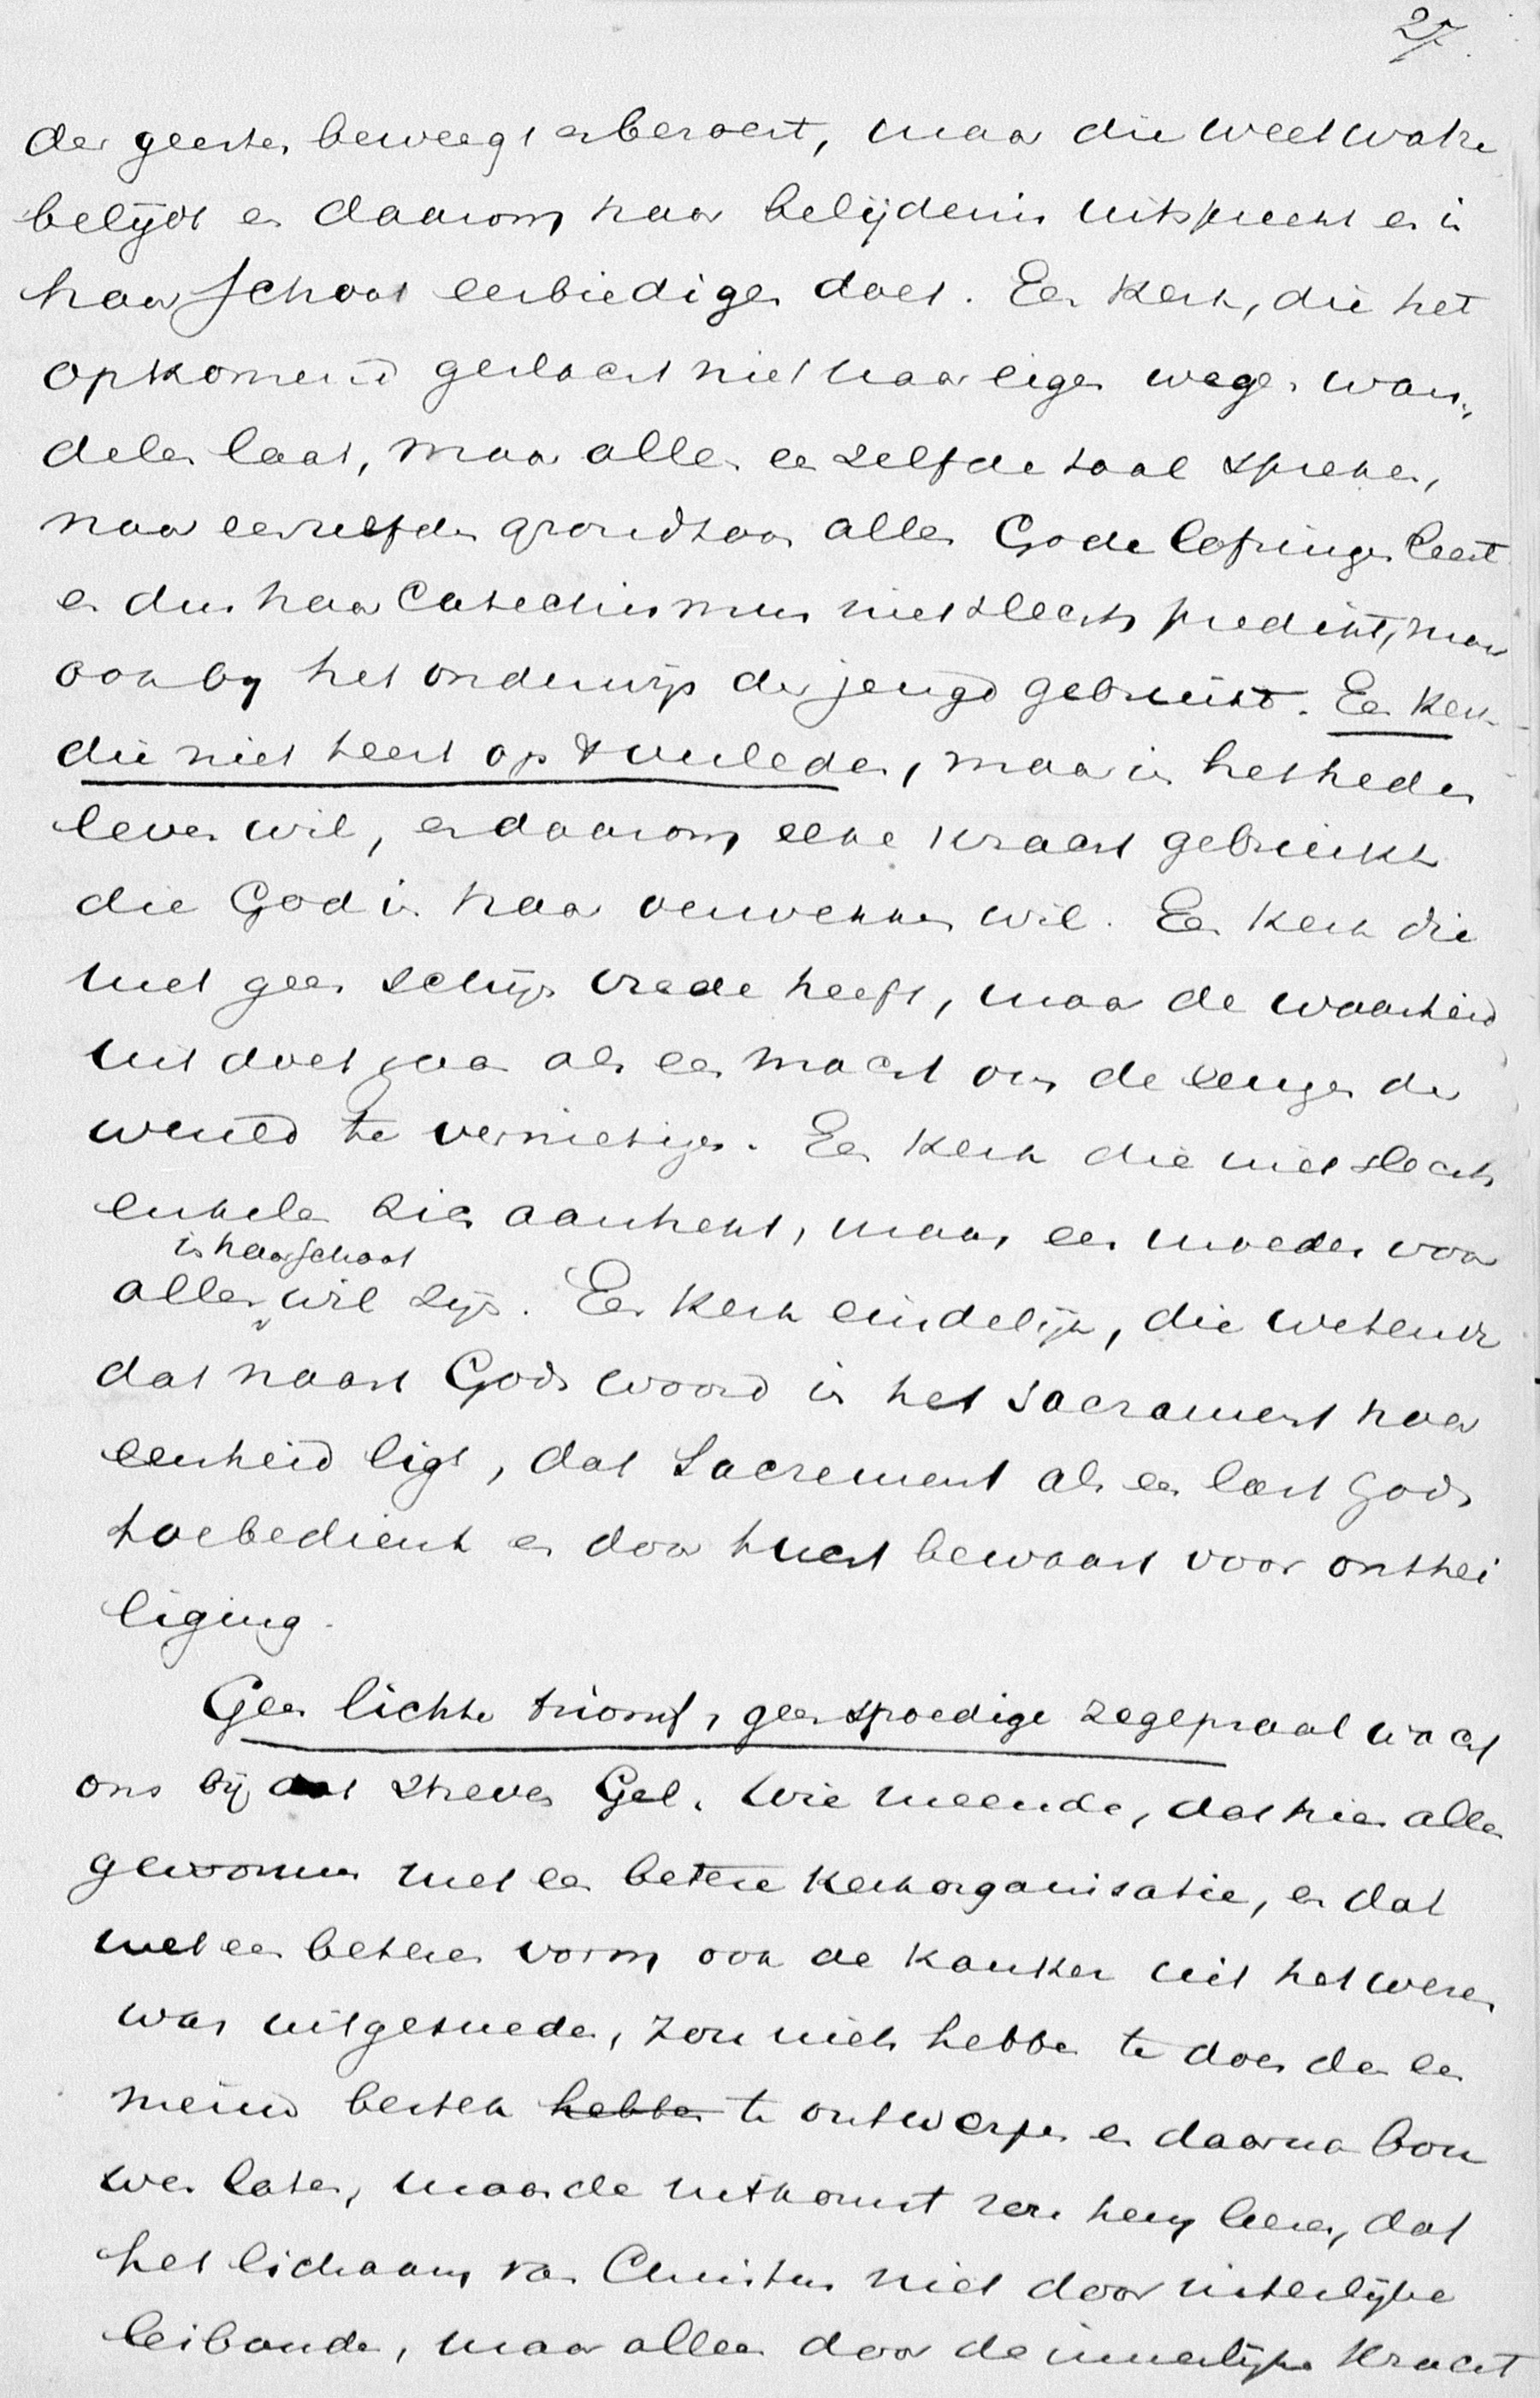 27.
der geesten beweegt en beroert, maar die weet wat ze
belijdt en daarom haar belijdenis uitspreekt en in
haar schoot eerbiedigen doet. Een kerk, die het
opkomend geslacht niet haar eigen wegen wan-
delen laat, maar allen eenzelfde taal spreken,
naar eenzelfden grondtoon allen Gode lofzingen leert
en dus haar Catechismus niet slechts predikt, maar
ook by het onderwijs der jeugd gebruikt. Een kerk
die niet teert op 't verleden, maar in het heden
leven wil, en daarom elke kracht gebruikt
die God in haar verwekken wil. Een kerk die
met geen schijn vrede heeft, maar de waarheid
uit doet gaan als een macht om de leugen der
wereld te vernietigen. Een kerk die niet slechts
enkelen aankweekt, maar een moeder voor
in haar schoot
allen wil zijn. Een kerk eindelijk, die wetend
dat naast Gods woord in het sacrament haar
eenheid ligt, dat Sacrament als een last Gods
toebedient en door tucht bewaart voor onthei
liging.
Geen lichte triomf, geen spoedige zegepraal wacht
ons bij dat streven Gel. Wie meende, dat hier alles
gewonnen met een betere kerkorganisatie, en dat
met een beteren vorm ook de kanker uit het wezen
was uitgesneden, zou niets hebben te doen dan een
nieuw bestek hebben te ontwerpen en daarna bou
wen laten, maar de uitkomst zou hem leeren, dat
het lichaam van Christus niet door uiterlijke
leibanden, maar alleen door de innerlijke kracht